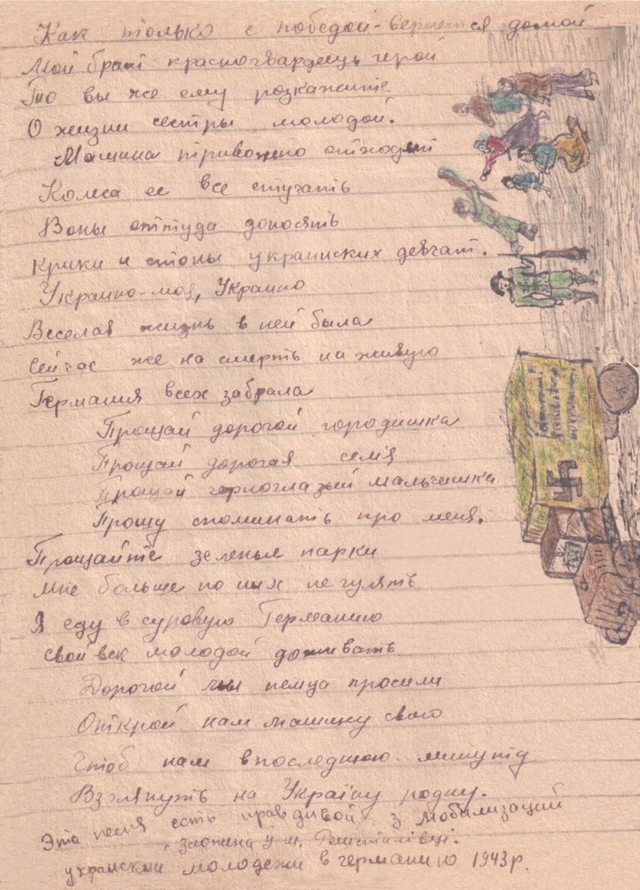 Как только с победой вернется домой
Мой брат красногвардеець герой
То вы же ему розкажите
О жизни сестры молодой.
Машина тривожно отходит
Колеса ее все стучать
Воны оттуда доносять
Крики и стоны украинских девчат.
Украино моя, Украино
Веселая жизнь в ней была
Сейчас же на смерть на живую
Германия всех забрала
Прощай дорогой городишка
Прощай дорогая семя
Прощай черноглазый мальчишка
Прошу споминать про меня.
Прощайте зеленые парки
Мне больше по них не гулять
Я еду в суровую Германию
Свой век молодой доживать.
Дорогой мы немца просили
Открой нам машину свою
Чтоб нам в последнюю минуту
Взглянуть на Україну родну.
Эта песня есть правдивой з мобилизаций
зложена у м.
украиской молодежи в германию 1943 р.